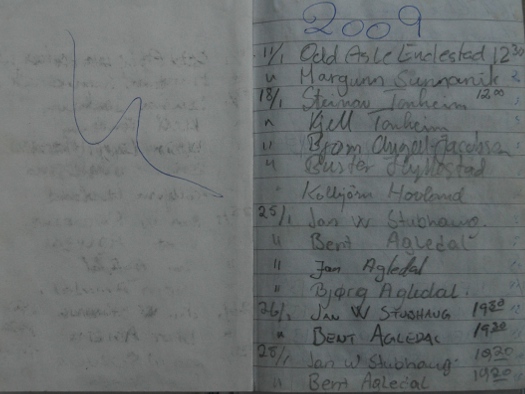 2009
11/1 Odd Asle Endestad 12 30
" Margunn Sunnanik
18/1 Steinar Tonheim 12 00
" Kjell Tonheim
" Bjørn
" Buster
Kolbjörn Hovland
25/1 Jan W Stubhaug.
" Bent Agledal
" Jan Agledal
" Bjørg Agledal.
26/1 JAN W STUBHAUG 19 20
" BENT AGLEDAL 19 20
28/1 Jan W Stubhaug. 19 20
" Bent Agledal 19 20